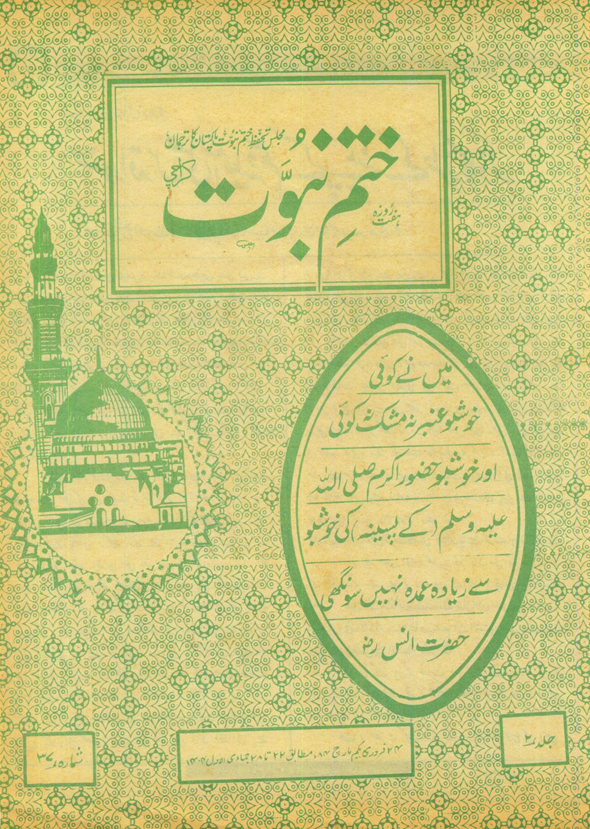 مجلس تحفظ ختم نبوت پاکستان کا ترجمان
ہفت روزہ
ختمِ نبوّت
کراچی
میں نے کوئی
خوشبو عنبر نہ مشک کوئی
اور خوشبو حضور اکرم صلی اللہ
علیہ وسلم (کے پسینہ) کی خوشبو
سے زیادہ عمدہ نہیں سونگھی
حضرت انس رض
جلد ۲
۲۴ فروری تا یکم مارچ ۸۴ء مطابق ۲۲ تا ۲۸ جمادی الاول ۱۴۰۴ھ
شمارہ ۳۷